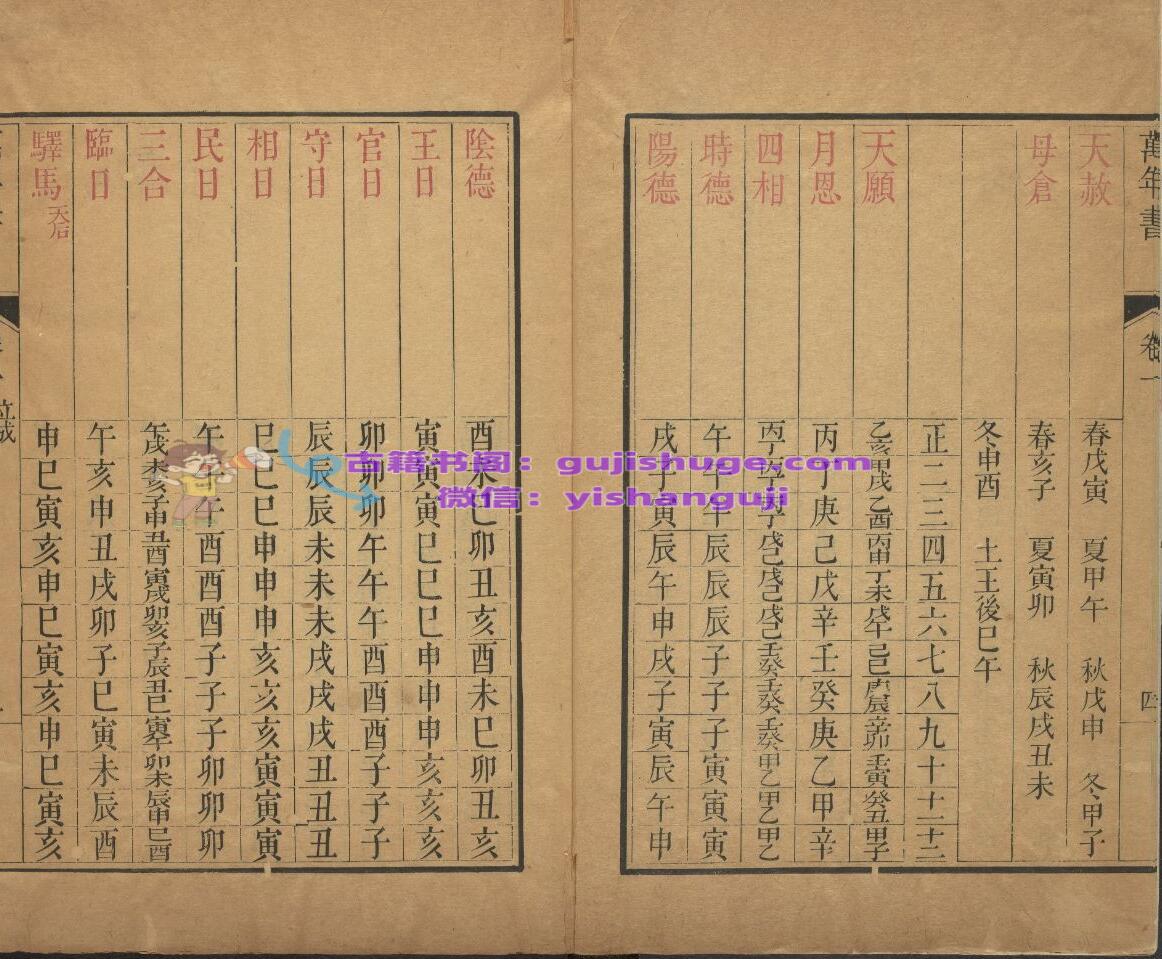 萬年書
卷一
四
天赦 春戊寅 夏甲午 秋戊申 冬甲子
母倉 春亥子 夏寅卯 秋辰戌丑未
冬申酉 土王後巳午
正二三四五六七八九十十一十二
天願 乙亥甲戌乙酉丙申丁未戊午己巳庚辰辛卯壬寅癸丑甲子
月恩 丙丁庚己戊辛壬癸庚乙甲辛
四相 丙丁丙丁丙丁戊己戊己戊己壬癸壬癸壬癸甲乙甲乙甲乙
時德 午午午辰辰辰子子子寅寅寅
陽德 戌子寅辰午申戌子寅辰午申
陰德 酉未巳卯丑亥酉未巳卯丑亥
王日 寅寅寅巳巳巳申申申亥亥亥
官日 卯卯卯午午午酉酉酉子子子
守日 辰辰辰未未未戌戌戌丑丑丑
相日 巳巳巳申申申亥亥亥寅寅寅
民日 午午午酉酉酉子子子卯卯卯
三合 午戌未亥子申丑酉寅戌卯亥子辰丑巳寅午卯未辰申巳酉
臨日 午亥申丑戌卯子巳寅未辰酉
驛馬 天后 申巳寅亥申巳寅亥申巳寅亥
立成
古籍书阁：gujishuge.com
微信：yishanguji